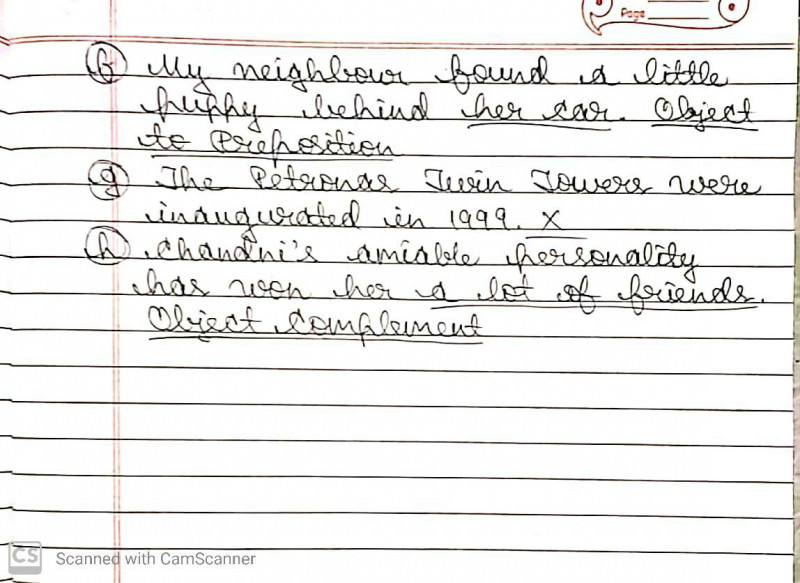 Page
(f) My neighbour found a little
puppy behind her car. Object
to Preposition
(g) The Petronas Twin Towers were
inaugurated in 1999. X
(h) Chandni's amiable personality
has won her a lot of friends.
Object Complement
CS Scanned with CamScanner